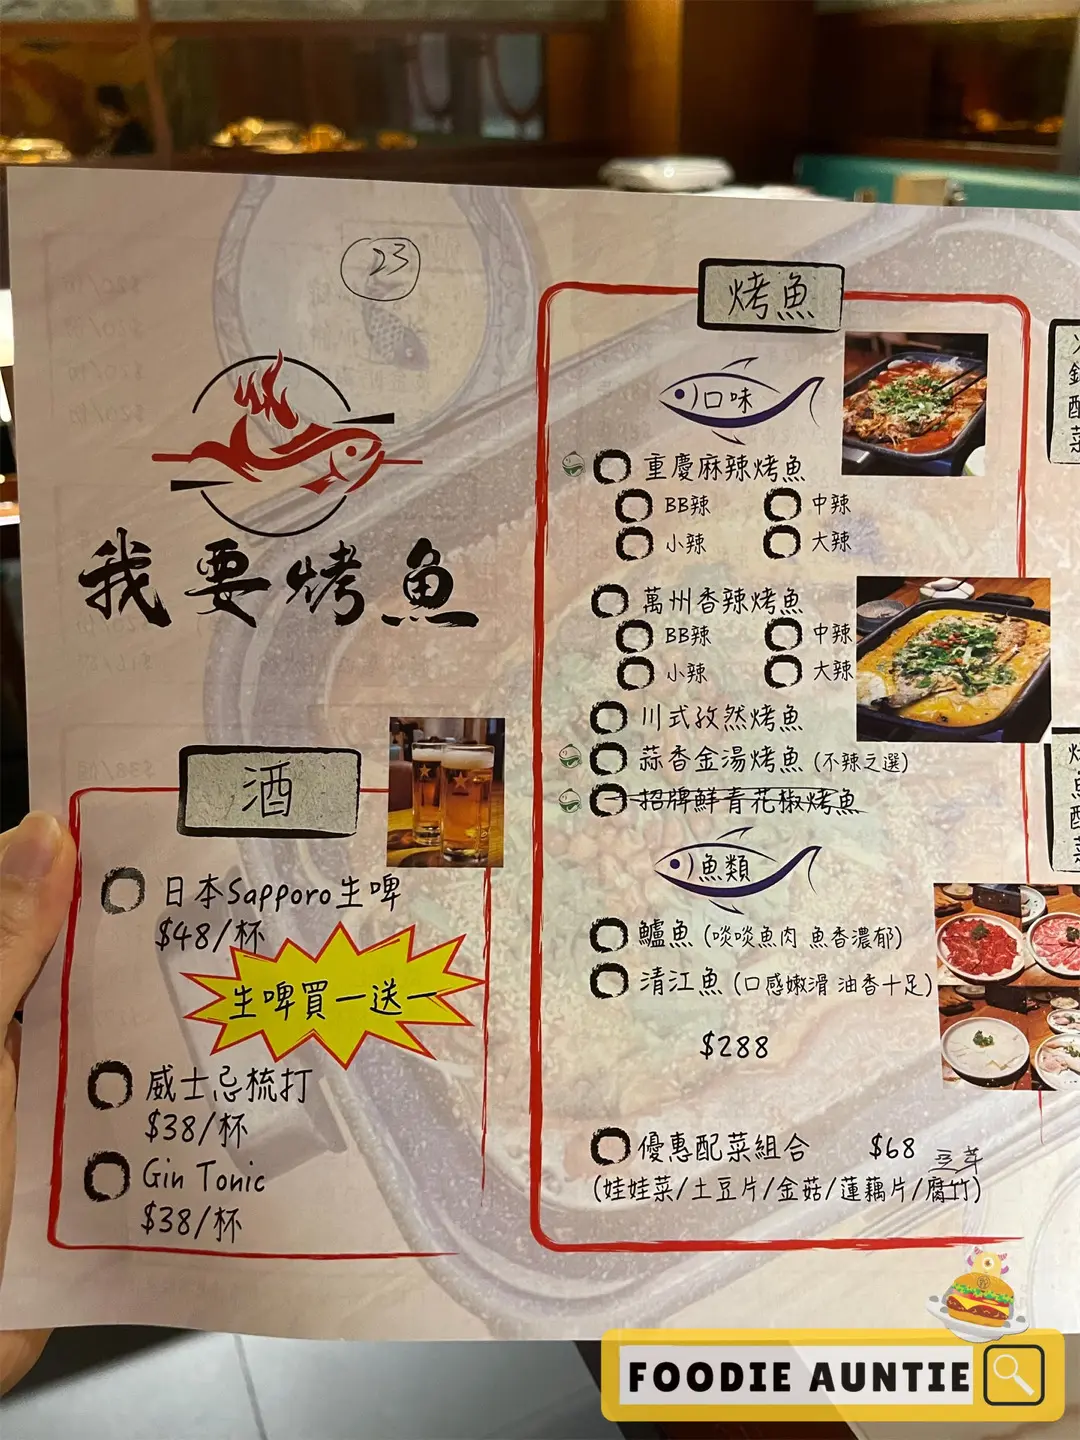 23
我要烤魚
酒
日本Sapporo生啤
$48/杯
生啤買一送一
威士忌梳打
$38/杯
Gin Tonic
$38/杯
烤魚
口味
重慶麻辣烤魚
BB辣 中辣
小辣 大辣
萬州香辣烤魚
BB辣 中辣
小辣 大辣
川式孜然烤魚
蒜香金湯烤魚 (不辣之選)
招牌鮮青花椒烤魚
魚類
鱸魚 (啖啖魚肉 魚香濃郁)
清江魚 (口感嫩滑 油香十足)
$288
優惠配菜組合 $68
豆芽
(娃娃菜/土豆片/金菇/蓮藕片/腐竹)
配菜
FOODIE AUNTIE